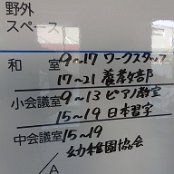 野外
スペース
和 室 9〜17 ワークスタッフ
17〜21 養孝支部
小会議室 9〜13 ピアノ教室
15〜19 日本習字
中会議室 15〜19
幼稚園協会